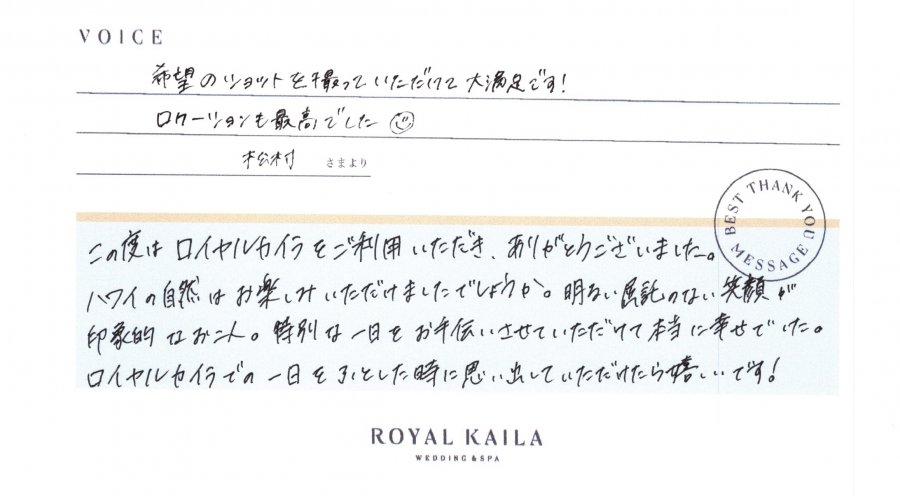 VOICE
希望のショットを撮っていただけて大満足です!
ロケーションも最高でした
松村 さまより
BEST THANK YOU MESSAGE
この度はロイヤルカイラをご利用いただき、ありがとうございました。
ハワイの自然はお楽しみいただけましたでしょうか。明るい屈託のない笑顔が
印象的なお二人。特別な一日をお手伝いさせていただけて本当に幸せでした。
ロイヤルカイラでの一日をふとした時に思い出していただけたら嬉しいです!
ROYAL KAILA
WEDDING & SPA